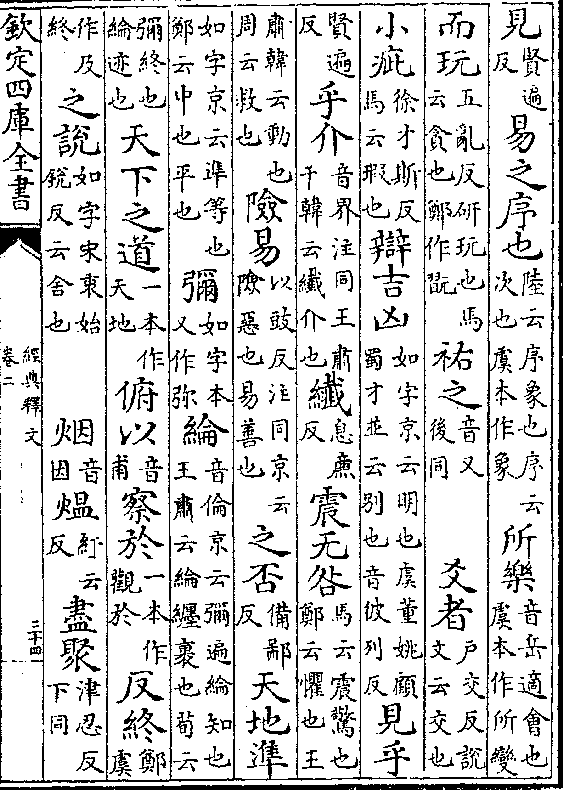 見賢遍反易之序也陸云序象也序云次也虞本作象所樂音岳適會也虞本作所變
而玩五亂反研玩也馬云貪也鄭作翫祐之音又後同爻者户交反說文云交也
小疵徐才斯反馬云瑕也辯吉凶如字京云明也虞董姚顧蜀才並云别也音彼列反見乎
賢遍反乎介音界注同王肅干韓云纖介也纖息廉反震无咎馬云震驚也鄭云懼也王
肅韓云動也周云救也險易以豉反注同京云險惡也易善也之否備鄙反天地準
如字京云準等也鄭云中也平也彌如字本又作弥綸音倫京云彌遍綸知也王肅云綸纒裹也荀云
彌終也綸迹也天下之道一本作天地俯以音甫察於一本作觀於反終鄭虞
作及終之說如字宋衷始銳反云舍也烟音因熅紆云反盡聚津忍反下同
欽定四庫全書
經典釋文
卷二
三十四